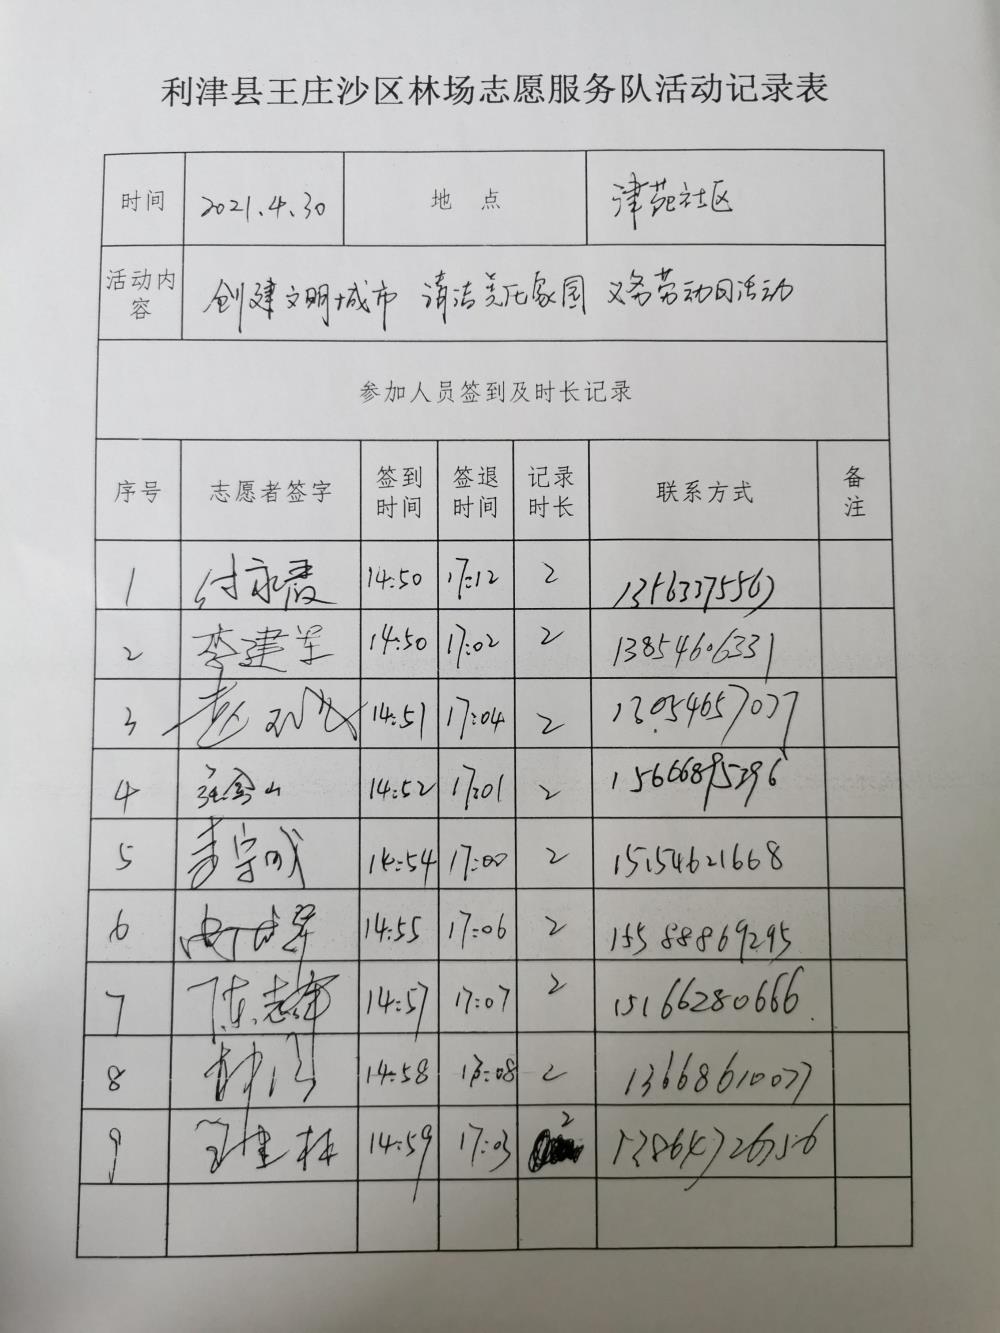 利津县王庄沙区林场志愿服务队活动记录表
时间 2021.4.30 地点 津苑社区
活动内容 创建文明城市 清洁美化家园 义务劳动日活动
参加人员签到及时长记录
序号 志愿者签字 签到时间 签退时间 记录时长 联系方式 备注
1 付永霞 14:50 17:12 2
2 李建军 14:50 17:02 2 13854606331
3 14:51 17:04 2 13054657077
4 14:52 17:01 2 15666895396
5 李宗成 14:54 17:00 2 15154621668
6 14:55 17:06 2 15588869295
7 陈志军 14:57 17:07 2 15166280666
8 14:58 17:08 2 13668610077
9 王建林 14:59 17:03 2